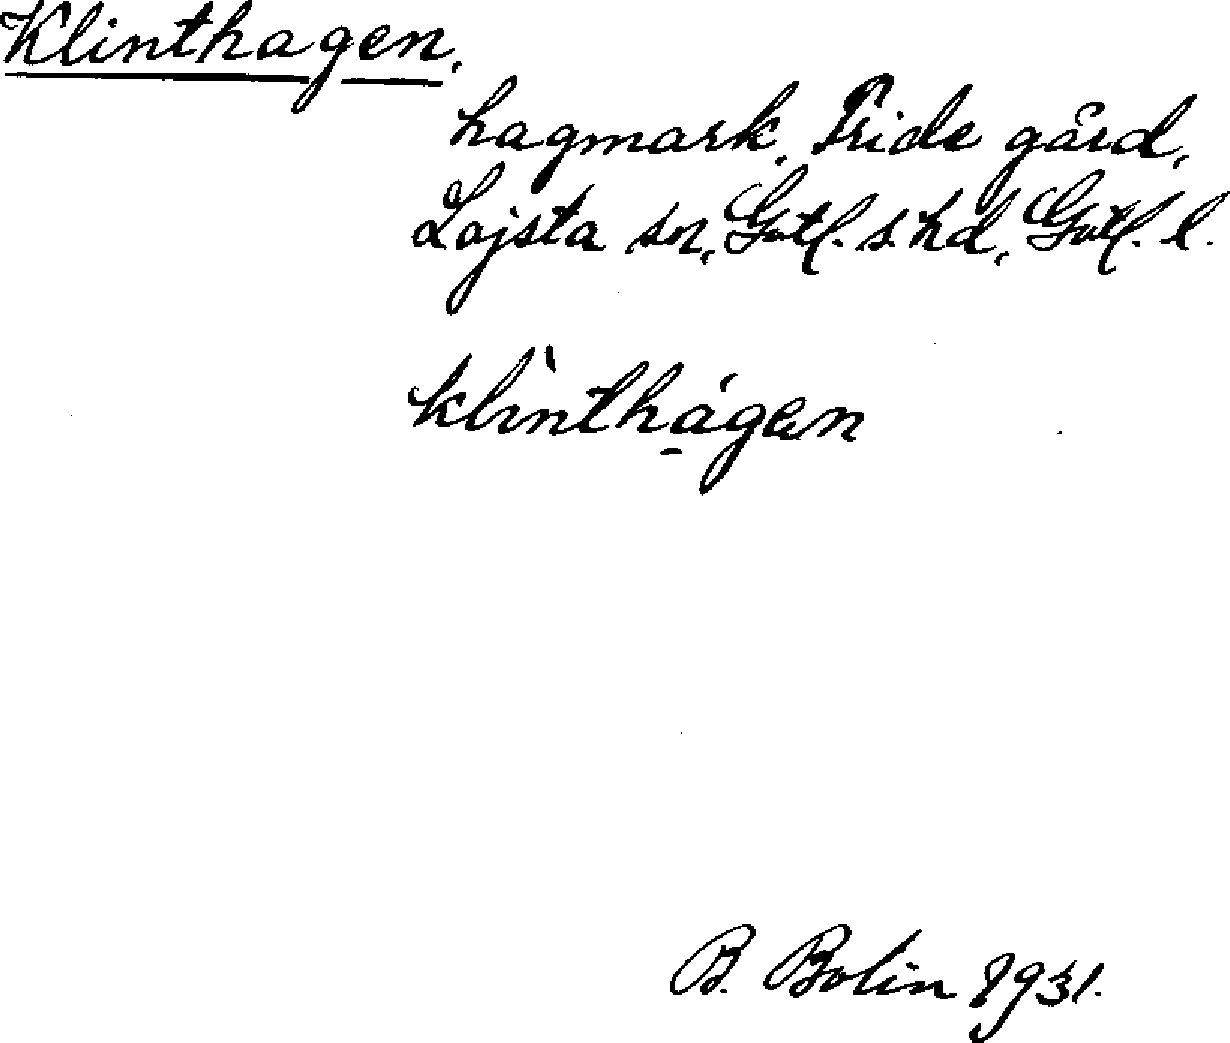 Klinthagen,
hagmark, Fride gård,
Lojsta sn, Gotl. s. hd, Gotl. l.
klìnthá̱gen
B. Bolin 1931.